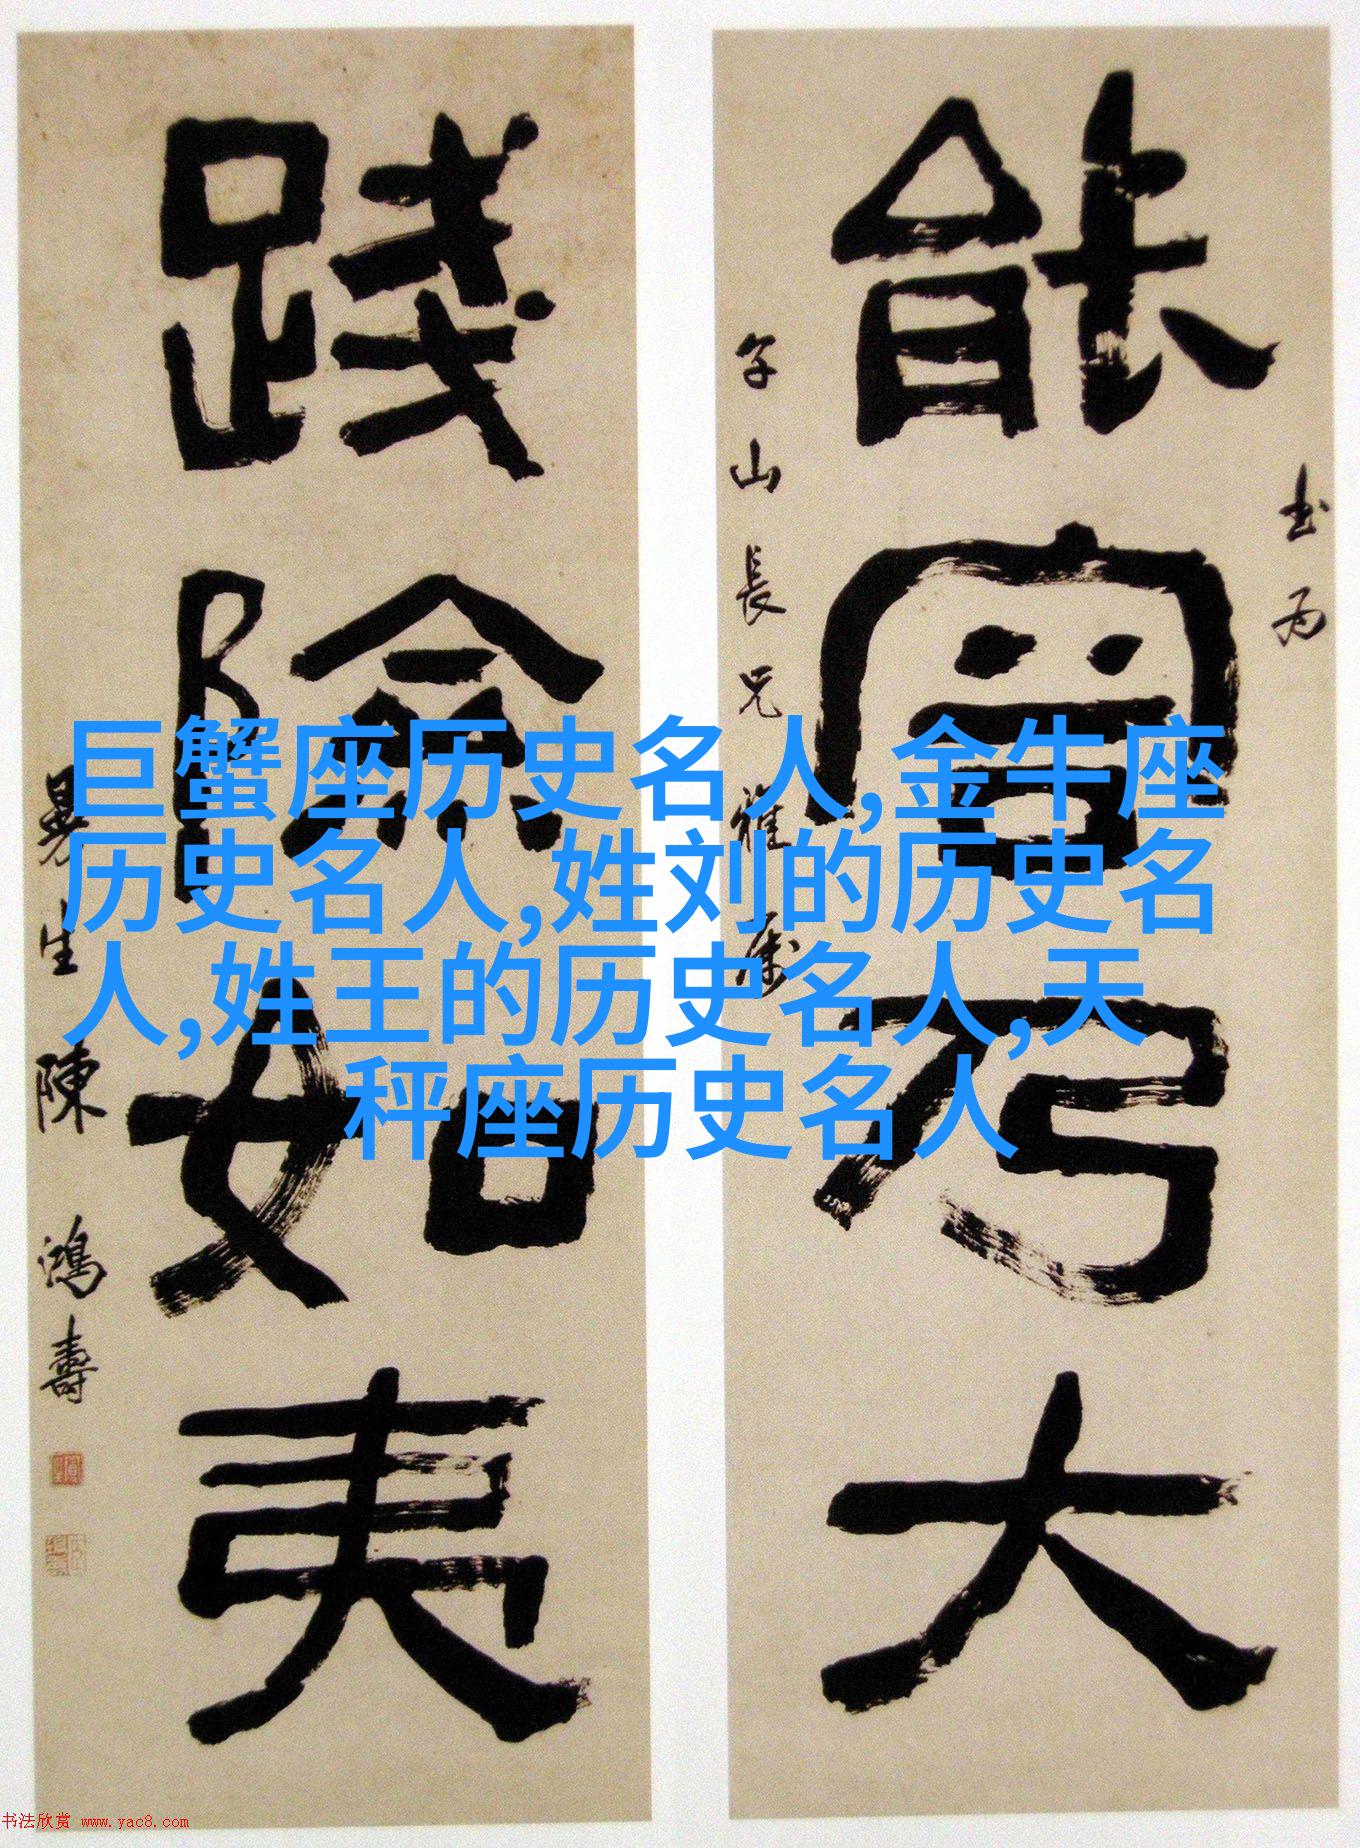 能宫乃大
书为
子山長兄雅属
践險如夷
曼生陳鴻壽
巨蟹座历史名人,金牛座
历史名人,姓刘的历史名
人,姓王的历史名人,天
秤座历史名人
书法欣赏 www.yac8.com